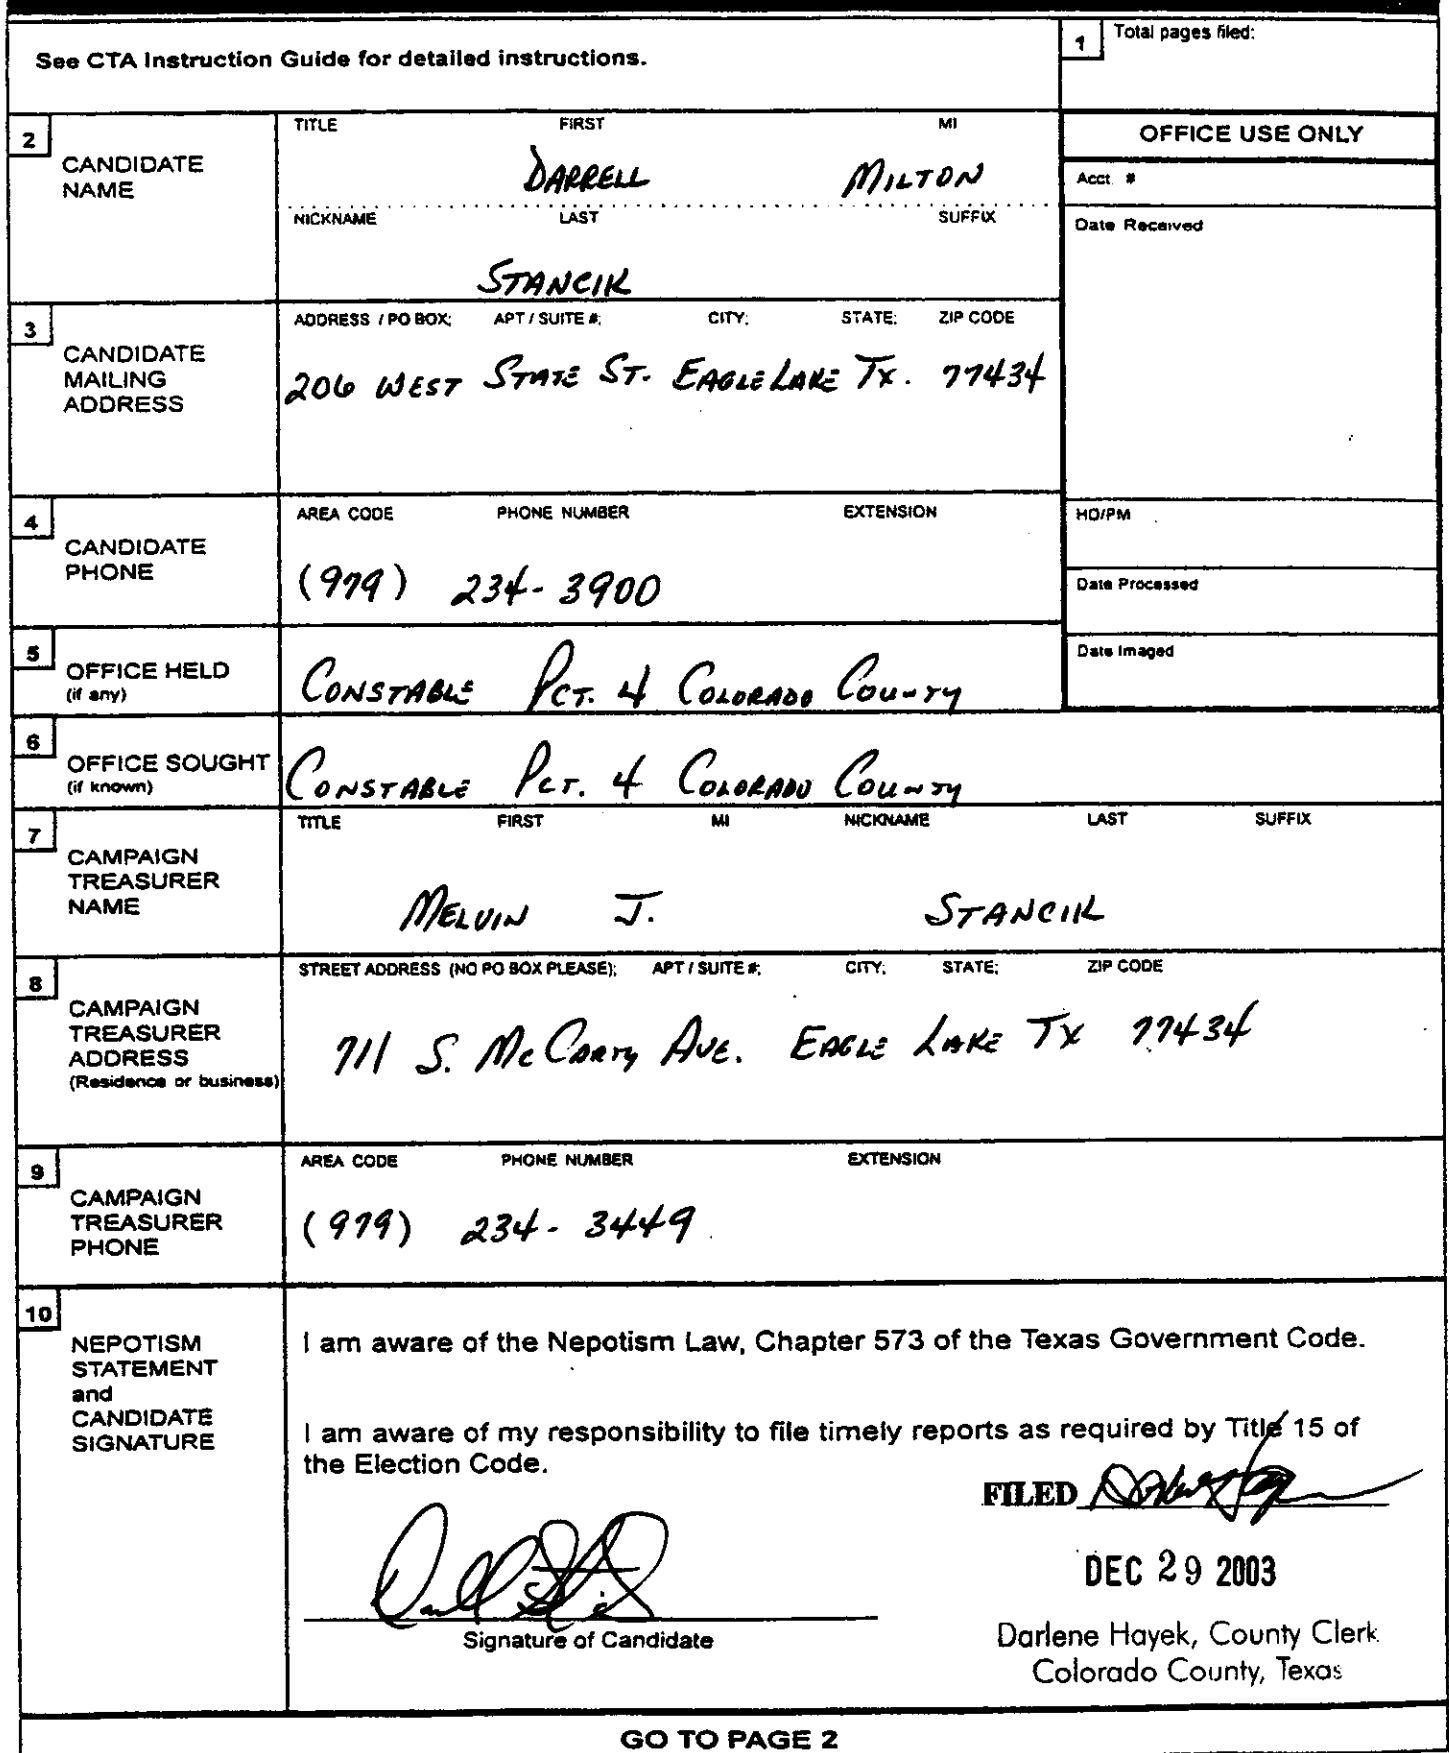 See CTA Instruction Guide for detailed instructions.
1 Total pages filed:
2 CANDIDATE NAME
TITLE FIRST MI
DARRELL MILTON
NICKNAME LAST SUFFIX
STANCIK
OFFICE USE ONLY
Acct. #
Date Received
3 CANDIDATE MAILING ADDRESS
ADDRESS / PO BOX; APT / SUITE #; CITY; STATE; ZIP CODE
206 WEST STATE ST. EAGLE LAKE TX. 77434
4 CANDIDATE PHONE
AREA CODE PHONE NUMBER EXTENSION
(979) 234-3900
HD/PM
Date Processed
5 OFFICE HELD
(if any)
CONSTABLE PCT. 4 COLORADO COUNTY
Date Imaged
6 OFFICE SOUGHT
(if known)
CONSTABLE PCT. 4 COLORADO COUNTY
7 CAMPAIGN TREASURER NAME
TITLE FIRST MI NICKNAME LAST SUFFIX
MELVIN J. STANCIK
8 CAMPAIGN TREASURER ADDRESS
(Residence or business)
STREET ADDRESS (NO PO BOX PLEASE); APT / SUITE #; CITY; STATE; ZIP CODE
711 S. McCARTY AVE. EAGLE LAKE TX 77434
9 CAMPAIGN TREASURER PHONE
AREA CODE PHONE NUMBER EXTENSION
(979) 234-3449
10 NEPOTISM STATEMENT and CANDIDATE SIGNATURE
I am aware of the Nepotism Law, Chapter 573 of the Texas Government Code.
I am aware of my responsibility to file timely reports as required by Title 15 of
the Election Code.
FILED
DEC 29 2003
Signature of Candidate
Darlene Hayek, County Clerk
Colorado County, Texas
GO TO PAGE 2